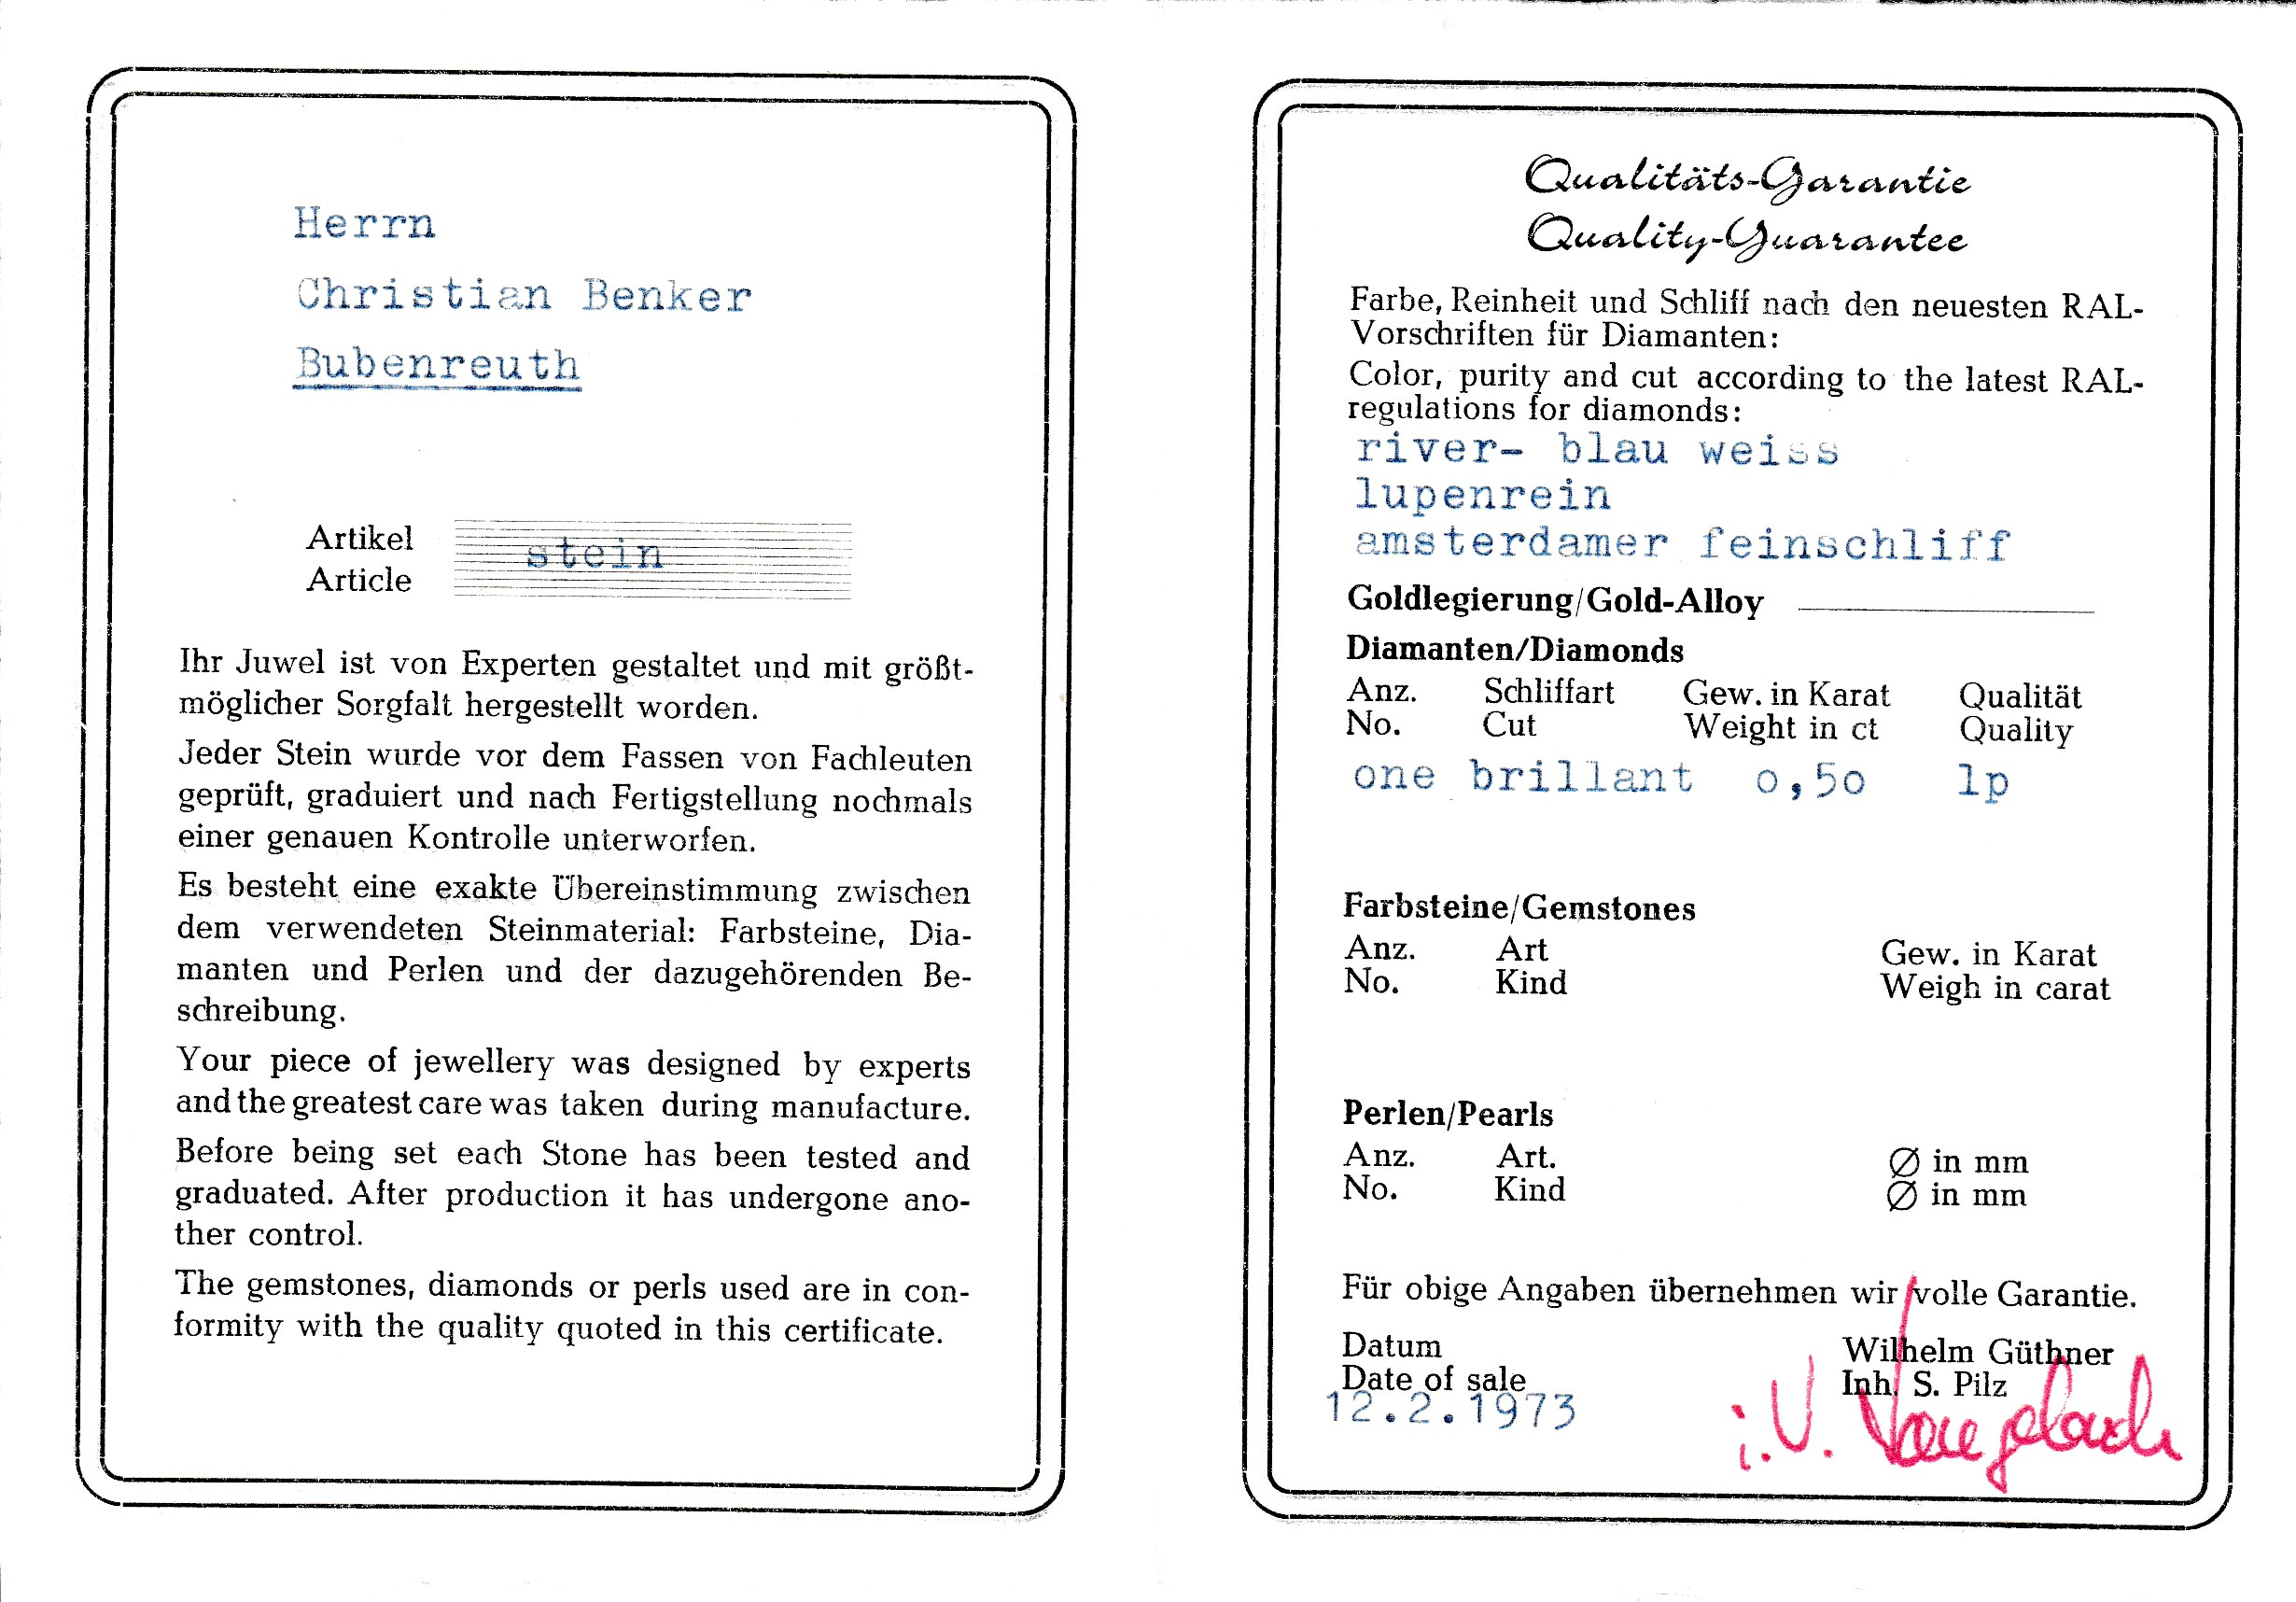 Herrn
Christian Benker
Bubenreuth
Artikel
Article
stein
Ihr Juwel ist von Experten gestaltet und mit größt-
möglicher Sorgfalt hergestellt worden.
Jeder Stein wurde vor dem Fassen von Fachleuten
geprüft, graduiert und nach Fertigstellung nochmals
einer genauen Kontrolle unterworfen.
Es besteht eine exakte Übereinstimmung zwischen
dem verwendeten Steinmaterial: Farbsteine, Dia-
manten und Perlen und der dazugehörenden Be-
schreibung.
Your piece of jewellery was designed by experts
and the greatest care was taken during manufacture.
Before being set each Stone has been tested and
graduated. After production it has undergone ano-
ther control.
The gemstones, diamonds or perls used are in con-
formity with the quality quoted in this certificate.
Qualitäts-Garantie
Quality-Guarantee
Farbe, Reinheit und Schliff nach den neuesten RAL-
Vorschriften für Diamanten:
Color, purity and cut according to the latest RAL-
regulations for diamonds:
river- blau weiss
lupenrein
amsterdamer feinschliff
Goldlegierung/Gold-Alloy
Diamanten/Diamonds
Anz. Schliffart Gew. in Karat Qualität
No. Cut Weight in ct Quality
one brillant 0,50 lp
Farbsteine/Gemstones
Anz. Art Gew. in Karat
No. Kind Weigh in carat
Perlen/Pearls
Anz. Art. Ø in mm
No. Kind Ø in mm
Für obige Angaben übernehmen wir volle Garantie.
Datum Wilhelm Güthner
Date of sale Inh. S. Pilz
12.2.1973 i.V.